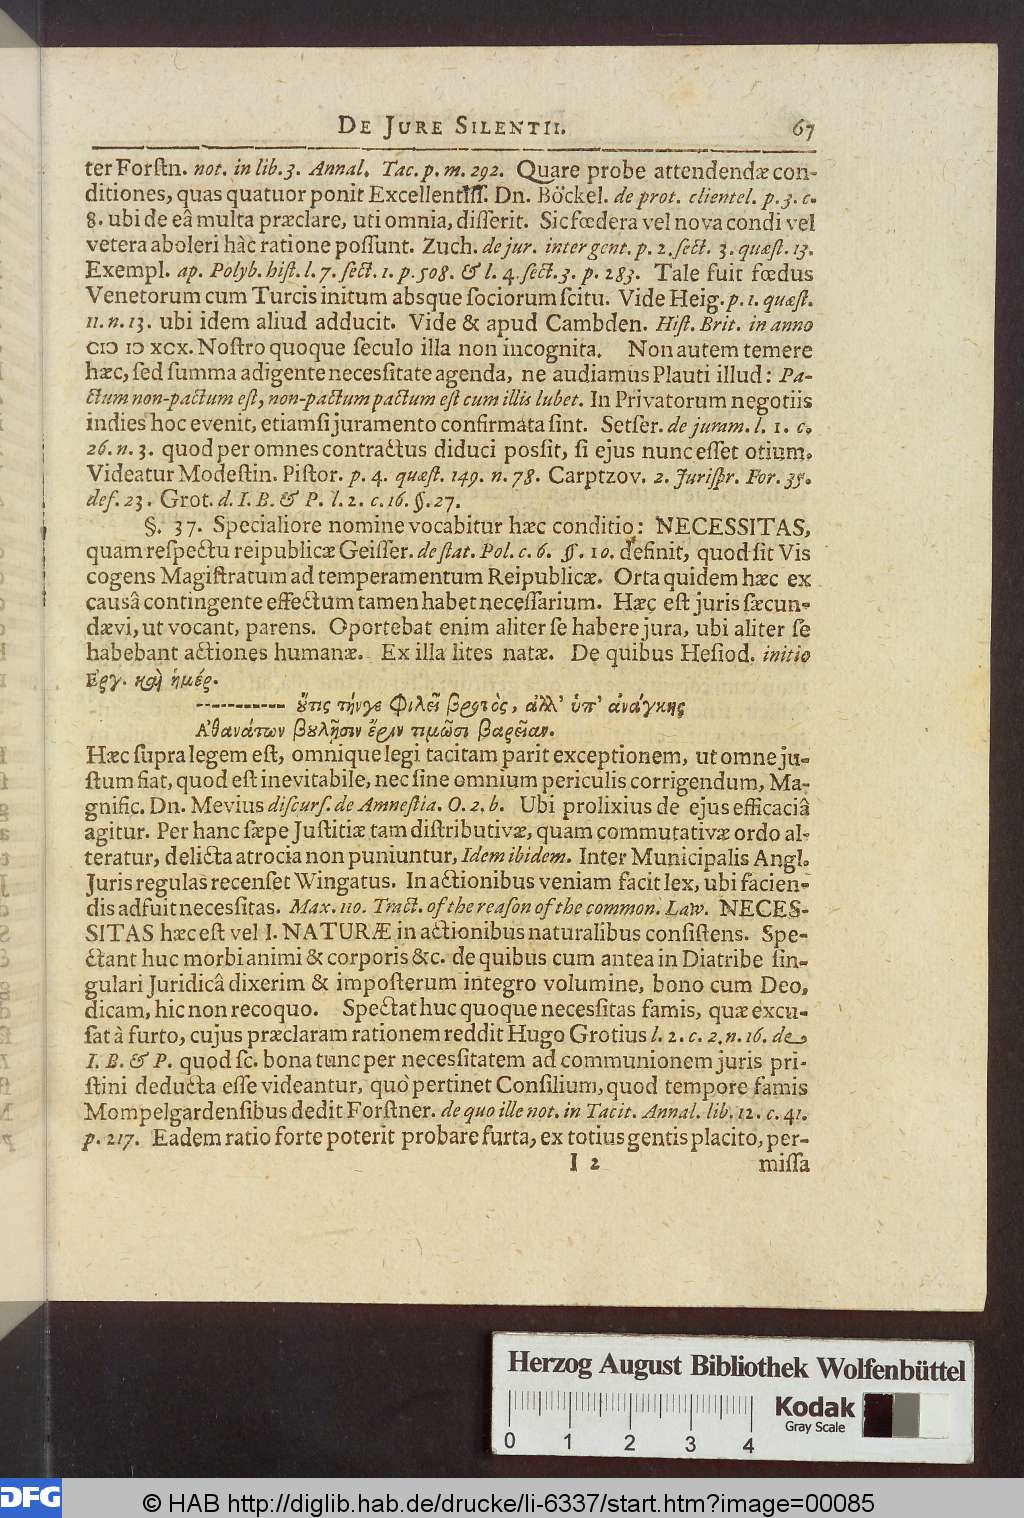 DE JURE SILENTII. 67
ter Forſtn. not. in lib. 3. Annal. Tac. p. m. 292. Quare probe attendendæ con-
ditiones, quas quatuor ponit Excellentiſſ. Dn. Böckel. de prot. clientel. p. 3. c.
8. ubi de eâ multa præclare, uti omnia, diſſerit. Sic fœdera vel nova condi vel
vetera aboleri hàc ratione poſſunt. Zuch. de jur. inter gent. p. 2. ſect. 3. quæſt. 13.
Exempl. ap. Polyb. hiſt. l. 7. ſect. 1. p. 508. & l. 4. ſect. 3. p. 283. Tale fuit fœdus
Venetorum cum Turcis initum absque ſociorum ſcitu. Vide Heig. p. 1. quæſt.
11. n. 13. ubi idem aliud adducit. Vide & apud Cambden. Hiſt. Brit. in anno
CIↃ IↃ XCX. Noſtro quoque ſeculo illa non incognita. Non autem temere
hæc, ſed ſumma adigente neceſsitate agenda, ne audiamus Plauti illud: Pa-
ctum non-pactum eſt, non-pactum pactum eſt cum illis lubet. In Privatorum negotiis
indies hoc evenit, etiamſi juramento confirmata ſint. Setſer. de juram. l. 1. c.
26. n. 3. quod per omnes contractus diduci poſsit, ſi ejus nunc eſſet otium.
Videatur Modeſtin. Piſtor. p. 4. quæſt. 149. n. 78. Carptzov. 2. Juriſpr. For. 35.
def. 23. Grot. d. I. B. & P. l. 2. c. 16. §. 27.
§. 37. Specialiore nomine vocabitur hæc conditio: NECESSITAS,
quam reſpectu reipublicæ Geiſſer. de ſtat. Pol. c. 6. §. 10. definit, quod ſit Vis
cogens Magiſtratum ad temperamentum Reipublicæ. Orta quidem hæc ex
causâ contingente effectum tamen habet neceſſarium. Hæc eſt juris ſæcun-
dævi, ut vocant, parens. Oportebat enim aliter ſe habere jura, ubi aliter ſe
habebant actiones humanæ. Ex illa lites natæ. De quibus Heſiod. initio
Ἐργ. καὶ ἡμέρ.
----------- ὔτις τήνγε φιλεῖ βροτὸς, ἀλλ' ὑπ' ἀνάγκης
Ἀθανάτων βουλῇσιν ἔριν τιμῶσι βαρεῖαν.
Hæc ſupra legem eſt, omnique legi tacitam parit exceptionem, ut omne ju-
ſtum fiat, quod eſt inevitabile, nec ſine omnium periculis corrigendum, Ma-
gnific. Dn. Mevius diſcurſ. de Amneſtia. O. 2. b. Ubi prolixius de ejus efficaciâ
agitur. Per hanc ſæpe Juſtitiæ tam diſtributivæ, quam commutativæ ordo al-
teratur, delicta atrocia non puniuntur, Idem ibidem. Inter Municipalis Angl.
Juris regulas recenſet Wingatus. In actionibus veniam facit lex, ubi facien-
dis adfuit neceſsitas. Max. 110. Tract. of the reaſon of the common. Law. NECES-
SITAS hæc eſt vel I. NATURÆ in actionibus naturalibus conſiſtens. Spe-
ctant huc morbi animi & corporis &c. de quibus cum antea in Diatribe ſin-
gulari Juridicâ dixerim & impoſterum integro volumine, bono cum Deo,
dicam, hic non recoquo. Spectat huc quoque neceſsitas famis, quæ excu-
ſat à furto, cujus præclaram rationem reddit Hugo Grotius l. 2. c. 2. n. 16. de
I. B. & P. quod ſc. bona tunc per neceſsitatem ad communionem juris pri-
ſtini deducta eſſe videantur, quo pertinet Conſilium, quod tempore famis
Mompelgardenſibus dedit Forſtner. de quo ille not. in Tacit. Annal. lib. 12. c. 41.
p. 217. Eadem ratio forte poterit probare furta, ex totius gentis placito, per-
I 2 miſſa
Herzog August Bibliothek Wolfenbüttel
Kodak
Gray Scale
0 1 2 3 4
DFG
© HAB http://diglib.hab.de/drucke/li-6337/start.htm?image=00085